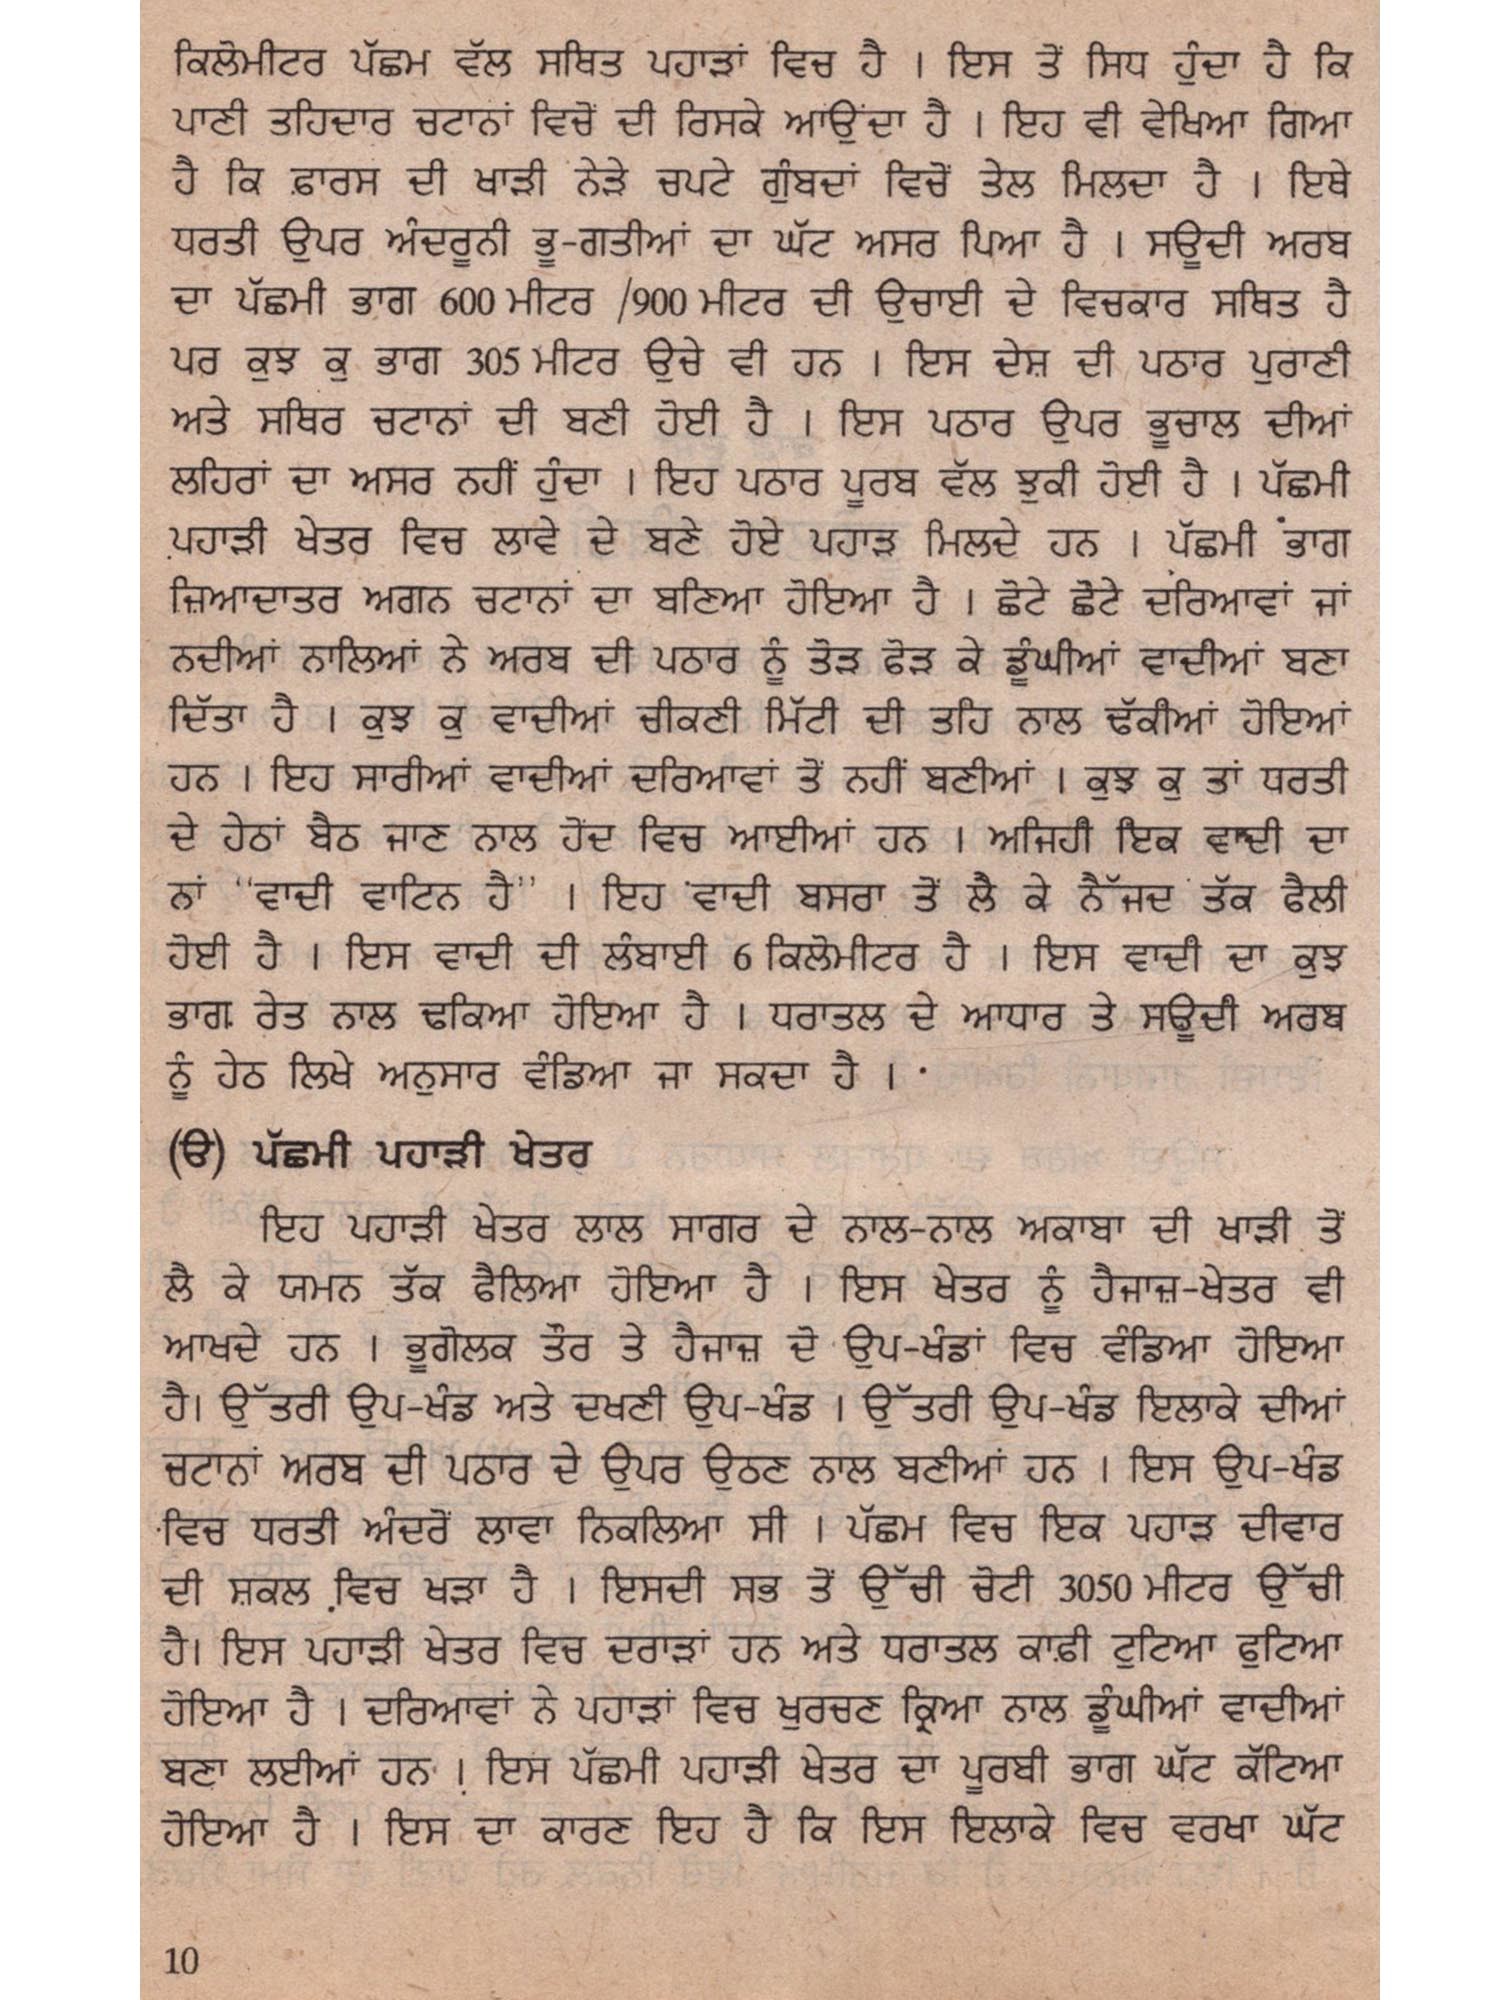 ਕਿਲੋਮੀਟਰ ਪੱਛਮ ਵੱਲ ਸਥਿਤ ਪਹਾੜਾਂ ਵਿਚ ਹੈ । ਇਸ ਤੋਂ ਸਿਧ ਹੁੰਦਾ ਹੈ ਕਿ
ਪਾਣੀ ਤਹਿਦਾਰ ਚਟਾਨਾਂ ਵਿਚੋਂ ਦੀ ਰਿਸਕੇ ਆਂਉਂਦਾ ਹੈ । ਇਹ ਵੀ ਵੇਖਿਆ ਗਿਆ
ਹੈ ਕਿ ਫ਼ਾਰਸ ਦੀ ਖਾੜੀ ਨੇੜੇ ਚਪਟੇ ਗੁੰਬਦਾਂ ਵਿਚੋਂ ਤੇਲ ਮਿਲਦਾ ਹੈ । ਇਥੇ
ਧਰਤੀ ਉਪਰ ਅੰਦਰੂਨੀ ਭੂ-ਗਤੀਆਂ ਦਾ ਘੱਟ ਅਸਰ ਪਿਆ ਹੈ । ਸਊਦੀ ਅਰਬ
ਦਾ ਪੱਛਮੀ ਭਾਗ 600 ਮੀਟਰ /900 ਮੀਟਰ ਦੀ ਉਚਾਈ ਦੇ ਵਿਚਕਾਰ ਸਥਿਤ ਹੈ
ਪਰ ਕੁਝ ਕੁ ਭਾਗ 305 ਮੀਟਰ ਉਚੇ ਵੀ ਹਨ । ਇਸ ਦੇਸ਼ ਦੀ ਪਠਾਰ ਪੁਰਾਣੀ
ਅਤੇ ਸਥਿਰ ਚਟਾਨਾਂ ਦੀ ਬਣੀ ਹੋਈ ਹੈ । ਇਸ ਪਠਾਰ ਉਪਰ ਭੂਚਾਲ ਦੀਆਂ
ਲਹਿਰਾਂ ਦਾ ਅਸਰ ਨਹੀਂ ਹੁੰਦਾ । ਇਹ ਪਠਾਰ ਪੂਰਬ ਵੱਲ ਝੁਕੀ ਹੋਈ ਹੈ । ਪੱਛਮੀ
ਪਹਾੜੀ ਖੇਤਰ ਵਿਚ ਲਾਵੇ ਦੇ ਬਣੇ ਹੋਏ ਪਹਾੜ ਮਿਲਦੇ ਹਨ । ਪੱਛਮੀ ਭਾਗ
ਜ਼ਿਆਦਾਤਰ ਅਗਨ ਚਟਾਨਾਂ ਦਾ ਬਣਿਆ ਹੋਇਆ ਹੈ । ਛੋਟੇ ਛੋਟੇ ਦਰਿਆਵਾਂ ਜਾਂ
ਨਦੀਆਂ ਨਾਲਿਆਂ ਨੇ ਅਰਬ ਦੀ ਪਠਾਰ ਨੂੰ ਤੋੜ ਫੋੜ ਕੇ ਡੂੰਘੀਆਂ ਵਾਦੀਆਂ ਬਣਾ
ਦਿੱਤਾ ਹੈ । ਕੁਝ ਕੁ ਵਾਦੀਆਂ ਚੀਕਣੀ ਮਿੱਟੀ ਦੀ ਤਹਿ ਨਾਲ ਢੱਕੀਆਂ ਹੋਇਆਂ
ਹਨ । ਇਹ ਸਾਰੀਆਂ ਵਾਦੀਆਂ ਦਰਿਆਵਾਂ ਤੋਂ ਨਹੀਂ ਬਣੀਆਂ । ਕੁਝ ਕੁ ਤਾਂ ਧਰਤੀ
ਦੇ ਹੇਠਾਂ ਬੈਠ ਜਾਣ ਨਾਲ ਹੋਂਦ ਵਿਚ ਆਈਆਂ ਹਨ । ਅਜਿਹੀ ਇਕ ਵਾਦੀ ਦਾ
ਨਾਂ "ਵਾਦੀ ਵਾਟਿਨ ਹੈ" । ਇਹ ਵਾਦੀ ਬਸਰਾ ਤੋਂ ਲੈ ਕੇ ਨੈੱਜਦ ਤੱਕ ਫੈਲੀ
ਹੋਈ ਹੈ । ਇਸ ਵਾਦੀ ਦੀ ਲੰਬਾਈ 6 ਕਿਲੋਮੀਟਰ ਹੈ । ਇਸ ਵਾਦੀ ਦਾ ਕੁਝ
ਭਾਗ ਰੇਤ ਨਾਲ ਢਕਿਆ ਹੋਇਆ ਹੈ । ਧਰਾਤਲ ਦੇ ਆਧਾਰ ਤੇ ਸਊਦੀ ਅਰਬ
ਨੂੰ ਹੇਠ ਲਿਖੇ ਅਨੁਸਾਰ ਵੰਡਿਆ ਜਾ ਸਕਦਾ ਹੈ ।
(ੳ) ਪੱਛਮੀ ਪਹਾੜੀ ਖੇਤਰ
ਇਹ ਪਹਾੜੀ ਖੇਤਰ ਲਾਲ ਸਾਗਰ ਦੇ ਨਾਲ-ਨਾਲ ਅਕਾਬਾ ਦੀ ਖਾੜੀ ਤੋਂ
ਲੈ ਕੇ ਯਮਨ ਤੱਕ ਫੈਲਿਆ ਹੋਇਆ ਹੈ । ਇਸ ਖੇਤਰ ਨੂੰ ਹੈਜਾਜ਼-ਖੇਤਰ ਵੀ
ਆਖਦੇ ਹਨ । ਭੂਗੋਲਕ ਤੌਰ ਤੇ ਹੈਜਾਜ਼ ਦੋ ਉਪ-ਖੰਡਾਂ ਵਿਚ ਵੰਡਿਆ ਹੋਇਆ
ਹੈ। ਉੱਤਰੀ ਉਪ-ਖੰਡ ਅਤੇ ਦਖਣੀ ਉਪ-ਖੰਡ । ਉੱਤਰੀ ਉਪ-ਖੰਡ ਇਲਾਕੇ ਦੀਆਂ
ਚਟਾਨਾਂ ਅਰਬ ਦੀ ਪਠਾਰ ਦੇ ਉਪਰ ਉਠਣ ਨਾਲ ਬਣੀਆਂ ਹਨ । ਇਸ ਉਪ-ਖੰਡ
ਵਿਚ ਧਰਤੀ ਅੰਦਰੋਂ ਲਾਵਾ ਨਿਕਲਿਆ ਸੀ । ਪੱਛਮ ਵਿਚ ਇਕ ਪਹਾੜ ਦੀਵਾਰ
ਦੀ ਸ਼ਕਲ ਵਿਚ ਖੜਾ ਹੈ । ਇਸਦੀ ਸਭ ਤੋਂ ਉੱਚੀ ਚੋਟੀ 3050 ਮੀਟਰ ਉੱਚੀ
ਹੈ। ਇਸ ਪਹਾੜੀ ਖੇਤਰ ਵਿਚ ਦਰਾੜਾਂ ਹਨ ਅਤੇ ਧਰਾਤਲ ਕਾਫ਼ੀ ਟੁਟਿਆ ਫੁਟਿਆ
ਹੋਇਆ ਹੈ । ਦਰਿਆਵਾਂ ਨੇ ਪਹਾੜਾਂ ਵਿਚ ਖੁਰਚਣ ਕ੍ਰਿਆ ਨਾਲ ਡੂੰਘੀਆਂ ਵਾਦੀਆਂ
ਬਣਾ ਲਈਆਂ ਹਨ । ਇਸ ਪੱਛਮੀ ਪਹਾੜੀ ਖੇਤਰ ਦਾ ਪੂਰਬੀ ਭਾਗ ਘੱਟ ਕੱਟਿਆ
ਹੋਇਆ ਹੈ । ਇਸ ਦਾ ਕਾਰਣ ਇਹ ਹੈ ਕਿ ਇਸ ਇਲਾਕੇ ਵਿਚ ਵਰਖਾ ਘੱਟ
10